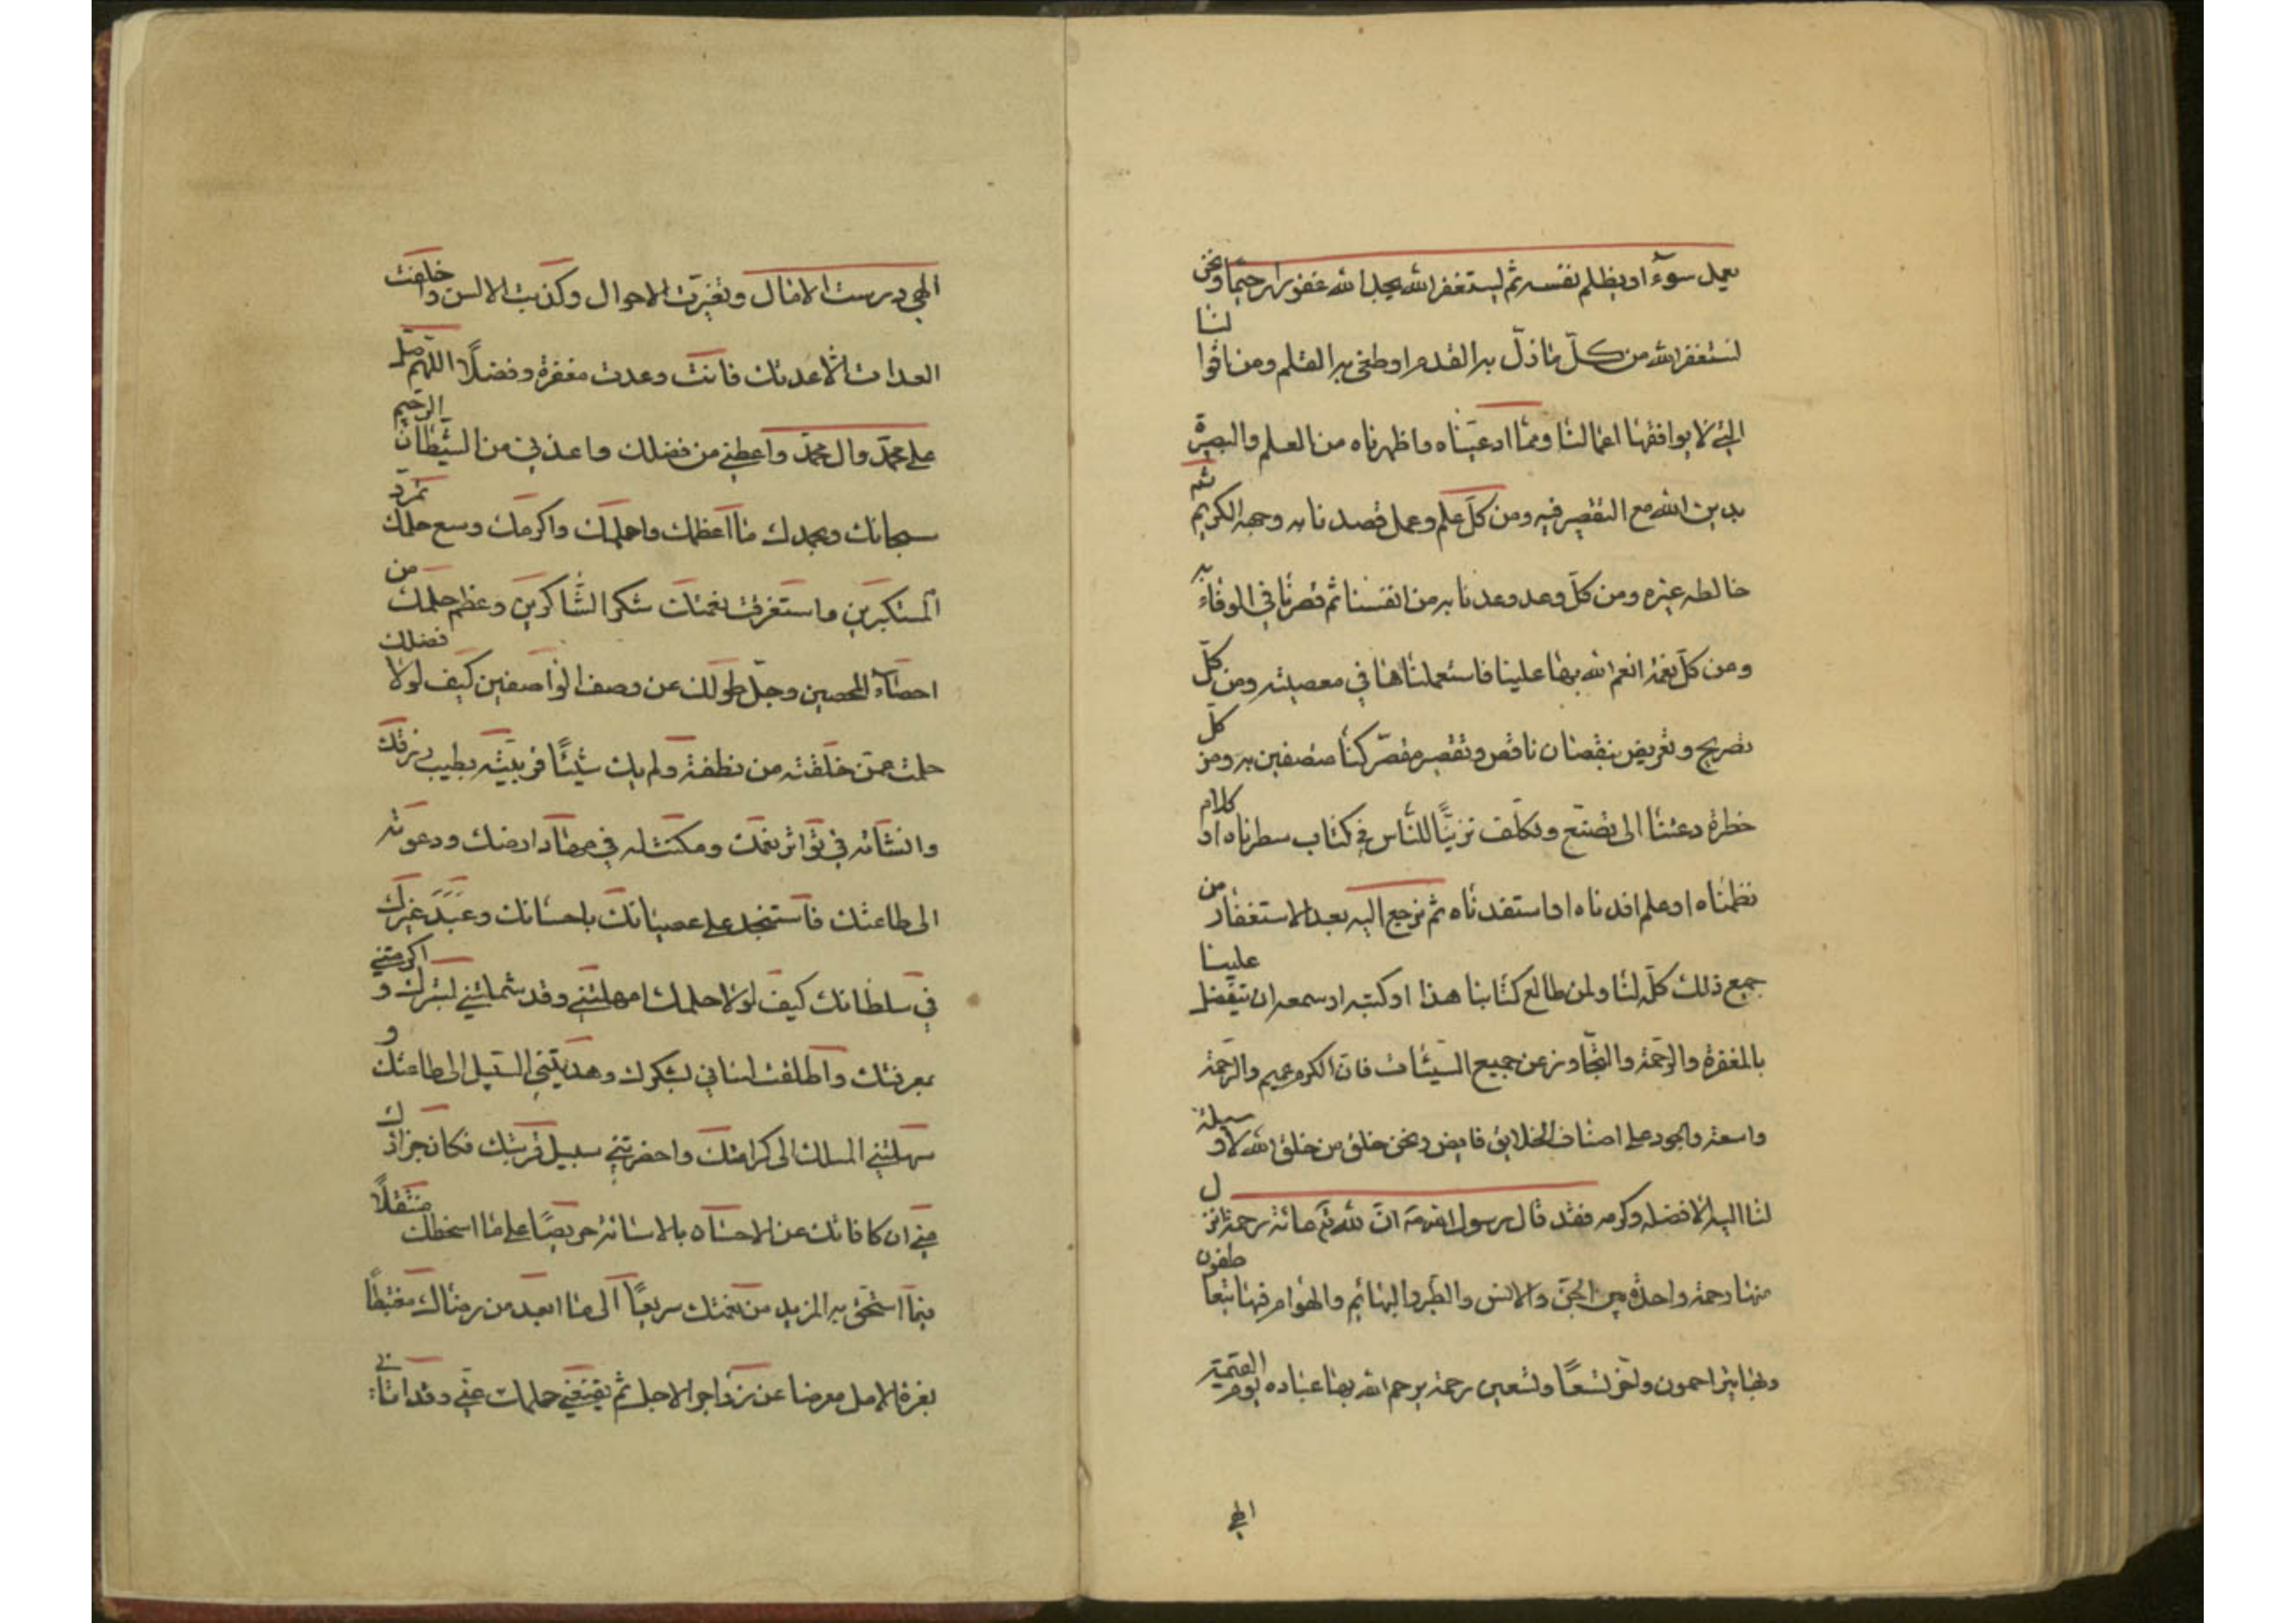 يعمل سوءً او يظلم نفسه ثم ليستغفر الله يجد الله غفورا رحيمًا ونحن
نستغفر الله من كلّ ما ذلّ به القدم او طغى به القلم ومن اقوالنا
التي لا يوافقها اعمالنا ومما ادعيناه واظهرناه من العلم والبصيرة
بدين الله مع التقصير فيه ومن كلّ علم وعمل قصدنا به وجهه الكريم ثم
خالطه غيره ومن كلّ وعد وعدنا به من انفسنا ثم قصرنا في الوفاء به
ومن كلّ نعمة انعم الله بها علينا فاستعملناها في معصيته ومن كلّ
تصريح وتعريض بنقصان ناقص وتقصير مقصّر كنا متصفين به ومن كلّ
خطرة دعتنا الى تصنّع وتكلّف تزيّنًا للنّاس في كتاب سطرناه او كلام
نظمناه او علم افدناه او استفدناه ثم نرجع اليه بعد الاستغفار من
جميع ذلك كلّه لنا ولمن طالع كتابنا هذا او كتبه او سمعه ان يتفضل علينا
بالمغفرة والرّحمة والتّجاوز عن جميع السّيئات فانّ الكرم عميم والرّحمة
واسعة والجود على اصناف الخلايق فايض ونحن خلق من خلق الله لا وسيلة
لنا اليه الا فضله وكرمه فقد قال رسول الله انّ لله مائة رحمة انزل
منها رحمة واحدة بين الجنّ والانس والطّير والبهائم والهوام فبها يتعاطفون
وبها يتراحمون واخّر تسعًا وتسعين رحمة يرحم الله بها عباده يوم القيمة
الهي
الهي درست الامال وتغيّرت الاحوال وكذبت الالسن واخلفت
العدات الا عدتك فانت وعدت مغفرة وفضلًا اللّهم صلّ
على محمّد وال محمّد واعطني من فضلك واعذني من الشّيطان الرّجيم
سبحانك وبحمدك ما اعظمك واحلمك واكرمك وسع حلمك تمرّد
المستكبرين واستغرقت نعمتك شكر الشّاكرين وعظم حلمك من
احصاء المحصين وجلّ طولك عن وصف الواصفين كيف لولا فضلك
حلمت عمّن خلقته من نطفة ولم يك شيئًا فربّيته بطيب رزقك
وانشاته في تواتر نعمك ومكنت له في مهاد ارضك ودعوته
الى طاعتك فاستنجد على عصيانك باحسانك وعبد غيرك
في سلطانك كيف لولا حلمك امهلتني وقد شملتني بسترك واكرمتني
بمعرفتك واطلقت لساني بشكرك وهديتني السّبيل الى طاعتك و
سهلتني المسلك الى كرامتك واحضرتني سبيل قربتك فكان جزاؤك
منّي ان كافاتك عن الاحسان بالاسائة حريصًا على ما اسخطك متنقلًا
فيما استحق به المزيد من نعمتك سريعًا الى ما ابعد من رضاك مغتبطًا
بغرة الامل معرضا عن زواجر الاجل ثم يقنعني حلمك عنّي وقد اتا: